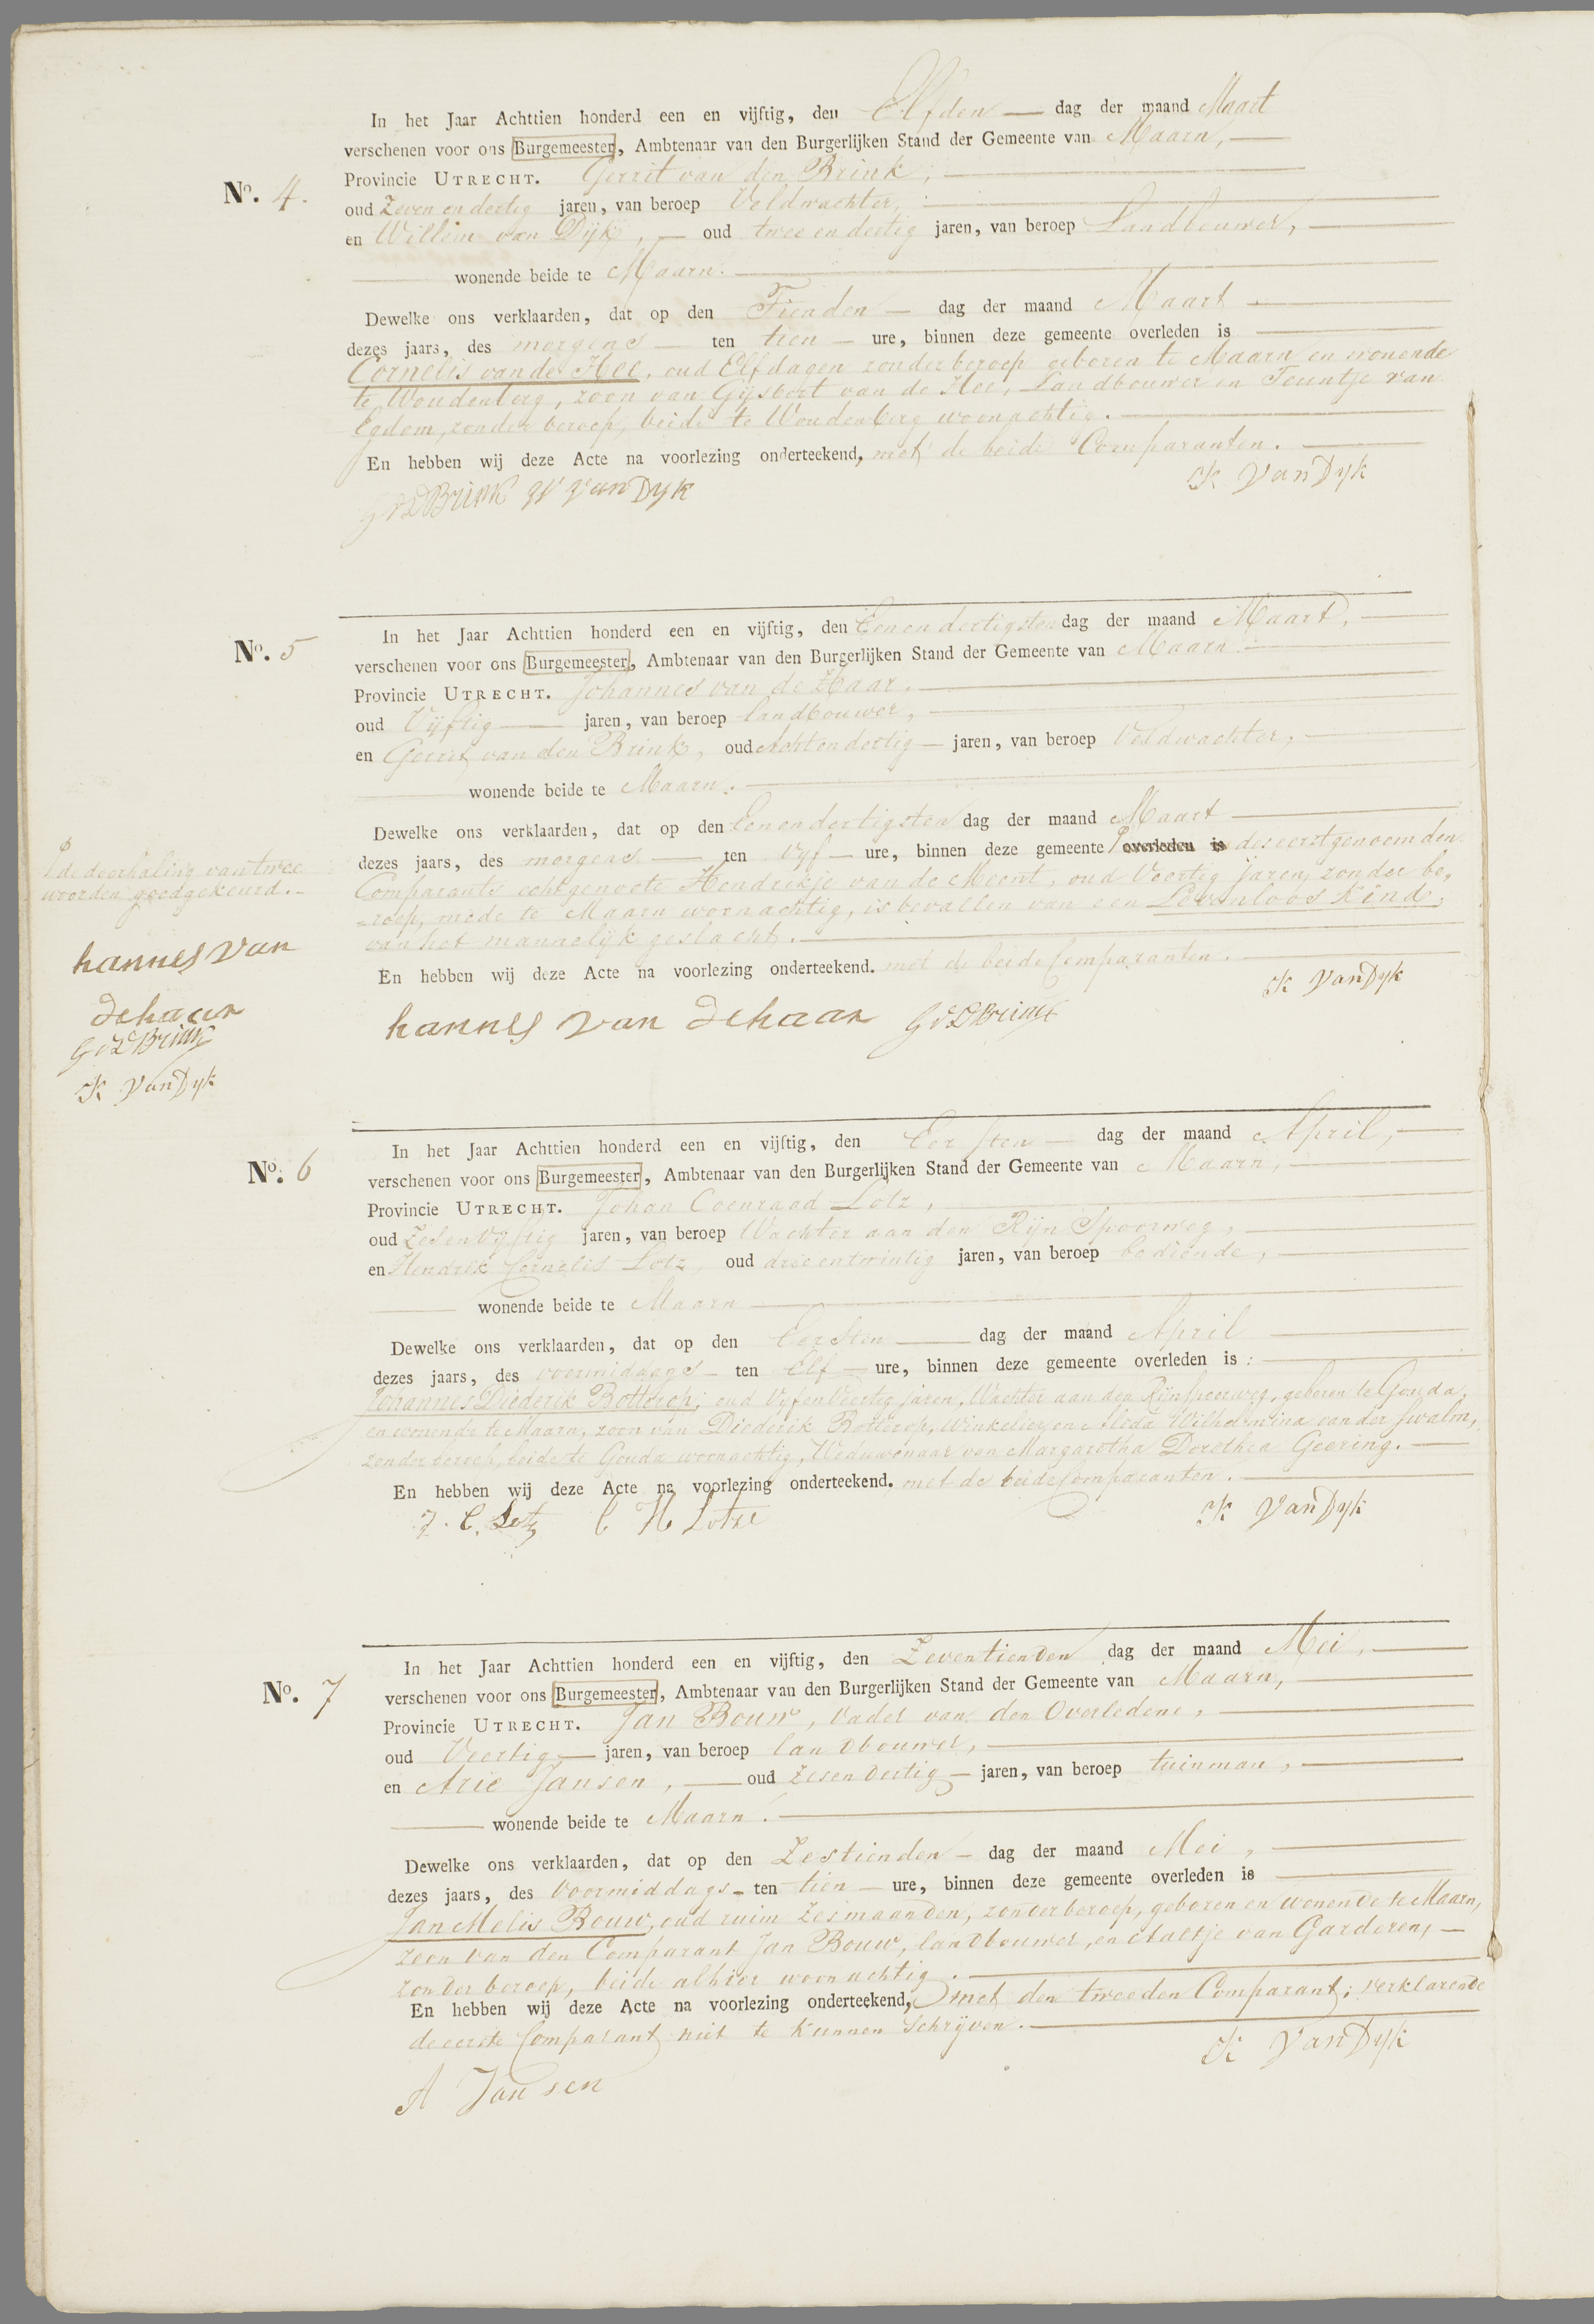 In het Jaar Achttien honderd een en vijftig, den Elfden dag der maand Maart
verschenen voor ons Burgemeester, Ambtenaar van den Burgerlijken Stand der Gemeente van Maarn,
Provincie UTRECHT. Gerrit van den Brink,
No. 4.
oud Zeven en dertig jaren, van beroep Veldwachter,
en Willem van Dijk, oud twee en dertig jaren, van beroep Landbouwer,
wonende beide te Maarn.
Dewelke ons verklaarden, dat op den Tienden dag der maand Maart
dezes jaars, des morgens ten tien ure, binnen deze gemeente overleden is
Cornelis van de Hee, oud Elf dagen zonder beroep geboren te Maarn en wonende
te Woudenberg, zoon van Gijsbert van de Hee, Landbouwer en Teuntje van
Egdom, zonder beroep, beide te Woudenberg woonachtig.
En hebben wij deze Acte na voorlezing onderteekend, met de beide Comparanten.
GVDBrink W van Dyk
K Van Dyk
No. 5
In het Jaar Achttien honderd een en vijftig, den Eenen dertigsten dag der maand Maart,
verschenen voor ons Burgemeester, Ambtenaar van den Burgerlijken Stand der Gemeente van Maarn.
Provincie UTRECHT. Johannes van de Haar.
oud Vijftig jaren, van beroep landbouwer,
en Gerrit van den Brink, oud Acht en dertig jaren, van beroep Veldwachter,
wonende beide te Maarn.
Dewelke ons verklaarden, dat op den Eenen dertigsten dag der maand Maart
dezes jaars, des morgens ten vyf ure, binnen deze gemeente overleden is des eerstgenoemden
Comparants echtgenoote Hendrikje van de Meent, oud Veertig jaren, zonder be-
=roep, mede te Maarn woonachtig, is bevallen van een Levenloos Kind,
van het mannelijk geslacht.
En hebben wij deze Acte na voorlezing onderteekend. met de beide Comparanten.
hannes van dehaar GVDBrink
K Van Dyk
de doorhaling van twee
woorden goedgekeurd.
hannes van
dehaar
GVDBrink
K Van Dyk
No. 6
In het Jaar Achttien honderd een en vijftig, den Eersten dag der maand April,
verschenen voor ons Burgemeester, Ambtenaar van den Burgerlijken Stand der Gemeente van Maarn,
Provincie UTRECHT. Johan Coenraad Lotz,
oud Zesenvyftig jaren, van beroep Wachter aan den Rijn Spoorweg,
en Hendrik Cornelis Lotz, oud drie entwintig jaren, van beroep bediende,
wonende beide te Maarn
Dewelke ons verklaarden, dat op den Eersten dag der maand April
dezes jaars, des voormiddags ten Elf ure, binnen deze gemeente overleden is:
Johannes Diederik Botterop, oud Vyfenveertig jaren, Wachter aan den Rijnspoorweg, geboren te Gouda,
en wonende te Maarn, zoon van Diederik Botterop, Winkelier, en Aleda Wilhelmina van der Swalm,
zonder beroep, beide te Gouda woonachtig, Weduwenaar van Margaretha Dorothea Geering.
En hebben wij deze Acte na voorlezing onderteekend. met de beide Comparanten.
J. C. Lotz C H Lotze
K Van Dyk
No. 7
In het Jaar Achttien honderd een en vijftig, den Zeventienden dag der maand Mei,
verschenen voor ons Burgemeester, Ambtenaar van den Burgerlijken Stand der Gemeente van Maarn,
Provincie UTRECHT. Jan Bouw, vader van den Overledene,
oud Veertig jaren, van beroep landbouwer,
en Arie Jansen, oud zesendertig jaren, van beroep tuinman,
wonende beide te Maarn.
Dewelke ons verklaarden, dat op den Zestienden dag der maand Mei,
dezes jaars, des Voormiddags ten tien ure, binnen deze gemeente overleden is
Jan Melis Bouw, oud ruim zes maanden, zonder beroep, geboren en wonende te Maarn,
zoon van den Comparant Jan Bouw, landbouwer, en Aaltje van Garderen,
zonder beroep, beide alhier woonachtig.
En hebben wij deze Acte na voorlezing onderteekend, met den tweeden Comparant; verklarende
de eerste Comparant niet te kunnen Schrijven.
K Van Dyk
A Jansen